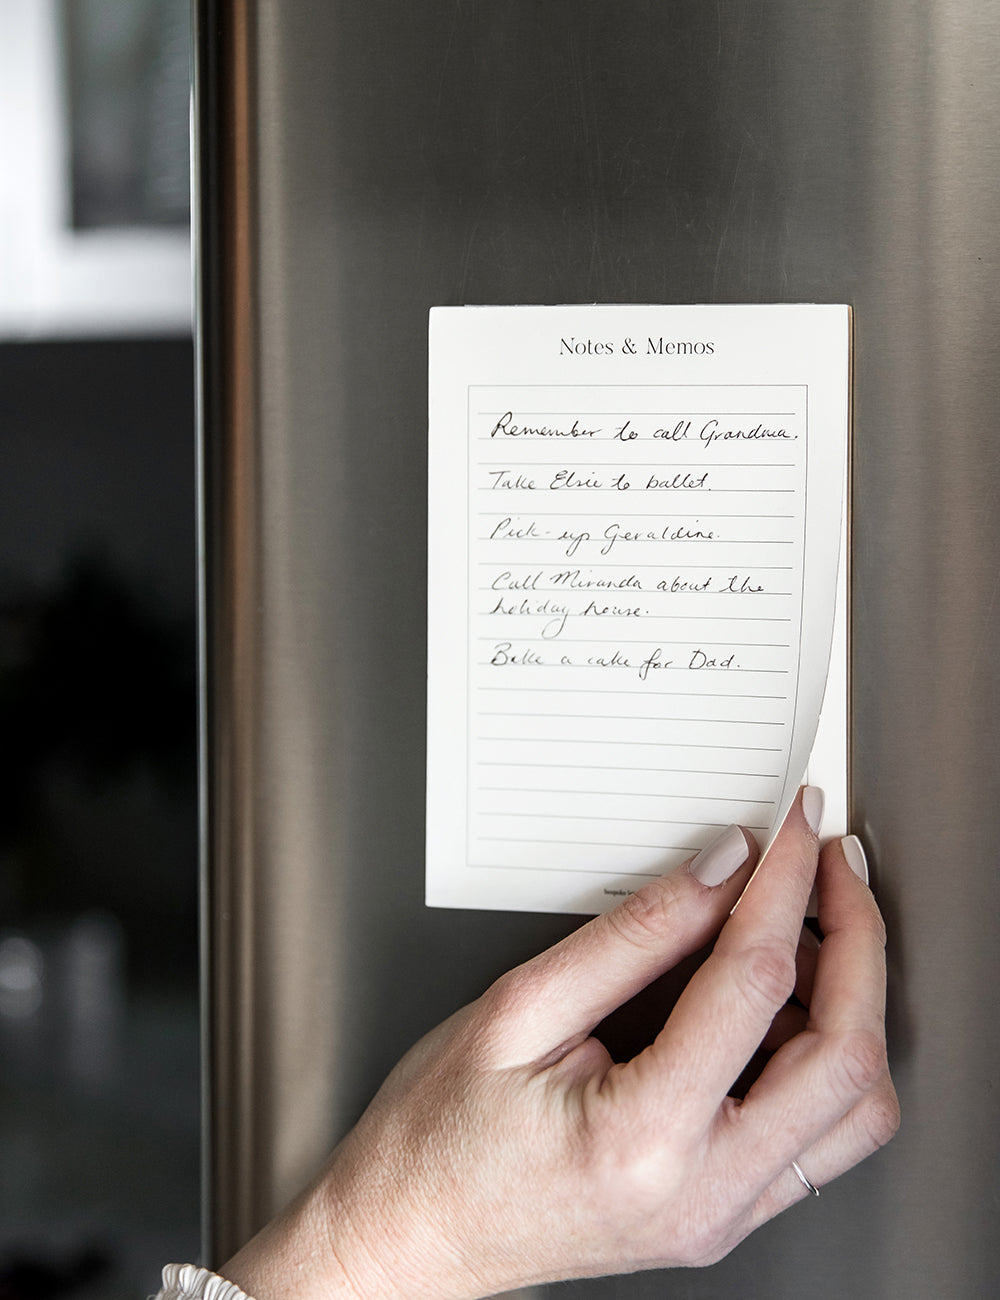 Notes & Memos
Remember to call Grandma.
Take Elsie to ballet.
Pick-up Geraldine.
Call Miranda about the
holiday house.
Bake a cake for Dad.